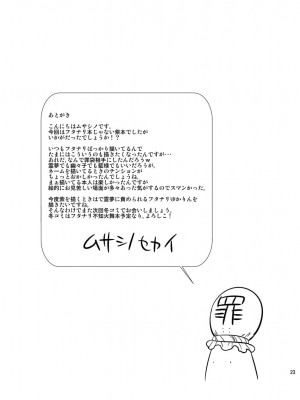 あとがき
こんにちはムサシノです。
今回はフタナリ本じゃない紫本でしたが
いかがだったでしょうか!?
いつもフタナリばっかり描いてるんで
たまにはこういうのも描きたくなったんですが…
あれだ、なんで罪袋相手にしたんだろうw
霊夢でも幽々子でも藍様でもいいだろうが、
ネームを描いてるときのテンションが
ちょっとおかしかったんでしょうね。
まぁ描いてる本人は楽しかったんですが
絵的にお見苦しい場面が多々あった気がするのでスマンかった。
今度紫を描くときは霊夢に責められるフタナリゆかりんを
描きたいですね。
そんなわけでまた次回冬コミでお会いしましょう。
冬コミはフタナリ不知火舞本予定なり、よろしこ!
ムサシノセカイ
罪
23